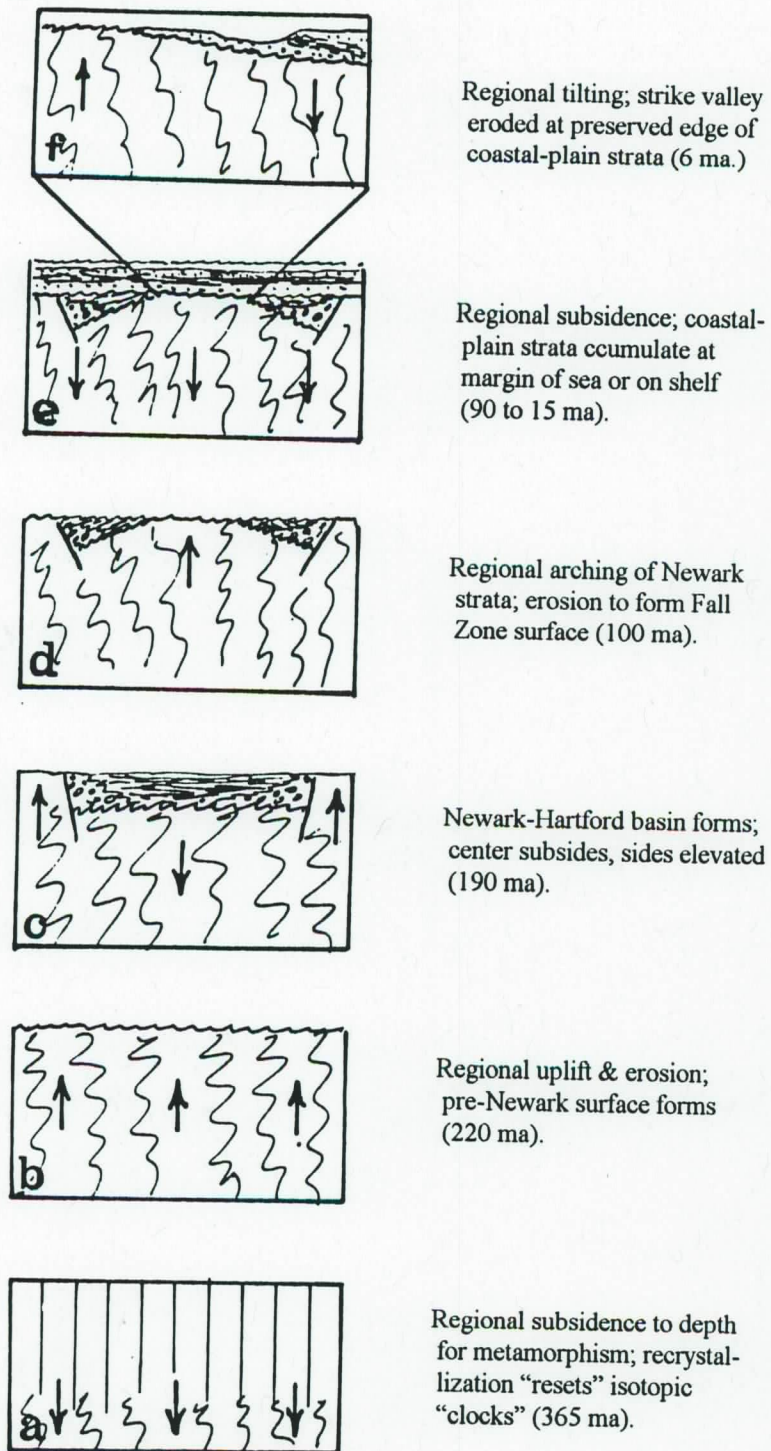 f
Regional tilting; strike valley
eroded at preserved edge of
coastal-plain strata (6 ma.)
e
Regional subsidence; coastal-
plain strata ccumulate at
margin of sea or on shelf
(90 to 15 ma).
d
Regional arching of Newark
strata; erosion to form Fall
Zone surface (100 ma).
c
Newark-Hartford basin forms;
center subsides, sides elevated
(190 ma).
b
Regional uplift & erosion;
pre-Newark surface forms
(220 ma).
a
Regional subsidence to depth
for metamorphism; recrystal-
lization “resets” isotopic
“clocks” (365 ma).